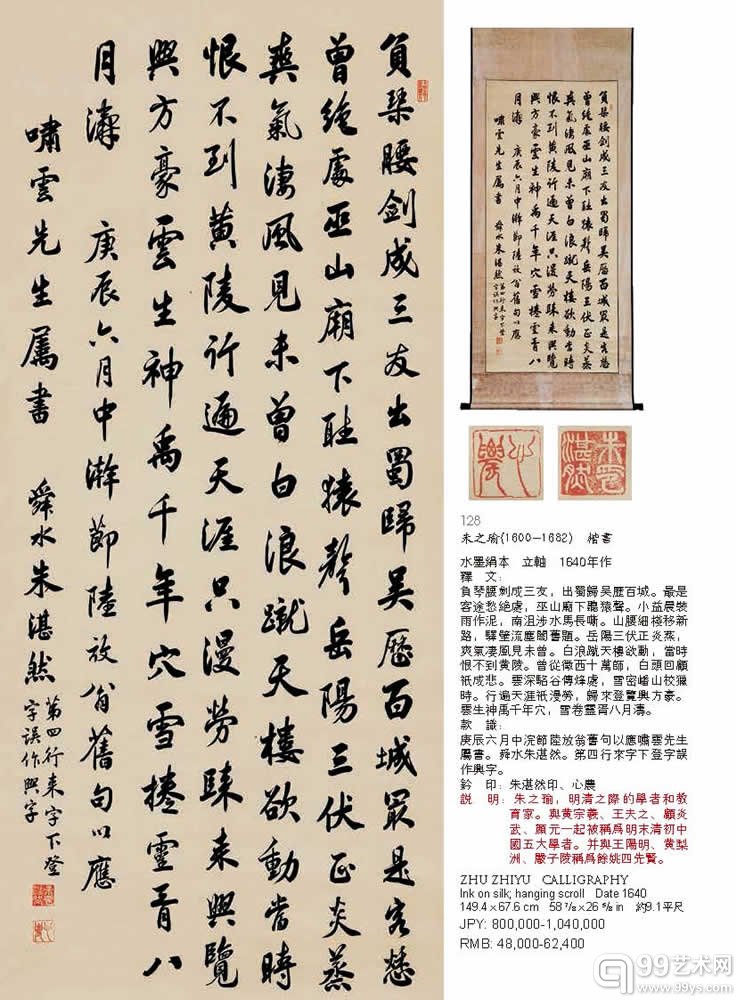 負琹腰劍成三友出蜀歸吴歷百城最是客愁
曾絶處巫山廟下聽猿聲岳陽三伏正炎蒸
爽氣淒風見未曾白浪蹴天樓欲動當時
恨不到黄陵行遍天涯只漫勞歸来興覽
興方豪雲生神禹千年穴雪捲靈胥八
月濤 庚辰六月中澣節陸放翁舊句以應
嘯雲先生屬書 舜水朱湛然 第四行来字下登
字誤作興字
128
朱之瑜(1600—1682) 楷書
水墨絹本 立軸 1640年作
釋 文:
負琴腰劍成三友,出蜀歸吴歷百城。最是
客途愁絶處,巫山廟下聽猿聲。小益晨裝
雨作泥,南沮涉水馬長嘶。山腰細棧移新
路,驛壁流塵闇舊題。岳陽三伏正炎蒸,
爽氣凄風見未曾。白浪蹴天樓欲動,當時
恨不到黄陵。曾從徵西十萬師,白頭回顧
祇成悲。雲深駱谷傳烽處,雪密嶓山校獵
時。行遍天涯祇漫勞,歸來登覽興方豪。
雲生神禹千年穴,雪卷靈胥八月濤。
款 識:
庚辰六月中浣節陸放翁舊句以應嘯雲先生
屬書。舜水朱湛然。第四行來字下登字誤
作興字。
鈐 印:朱湛然印、心農
説 明:朱之瑜,明清之際的學者和教
育家。與黄宗羲、王夫之、顧炎
武、顔元一起被稱爲明末清初中
國五大學者。并與王陽明、黄梨
洲、嚴子陵稱爲餘姚四先賢。
ZHU ZHIYU CALLIGRAPHY
Ink on silk; hanging scroll Date 1640
149.4×67.6 cm 58 7/8×26 5/8 in 約9.1平尺
JPY: 800,000-1,040,000
RMB: 48,000-62,400
99艺术网
www.99ys.com